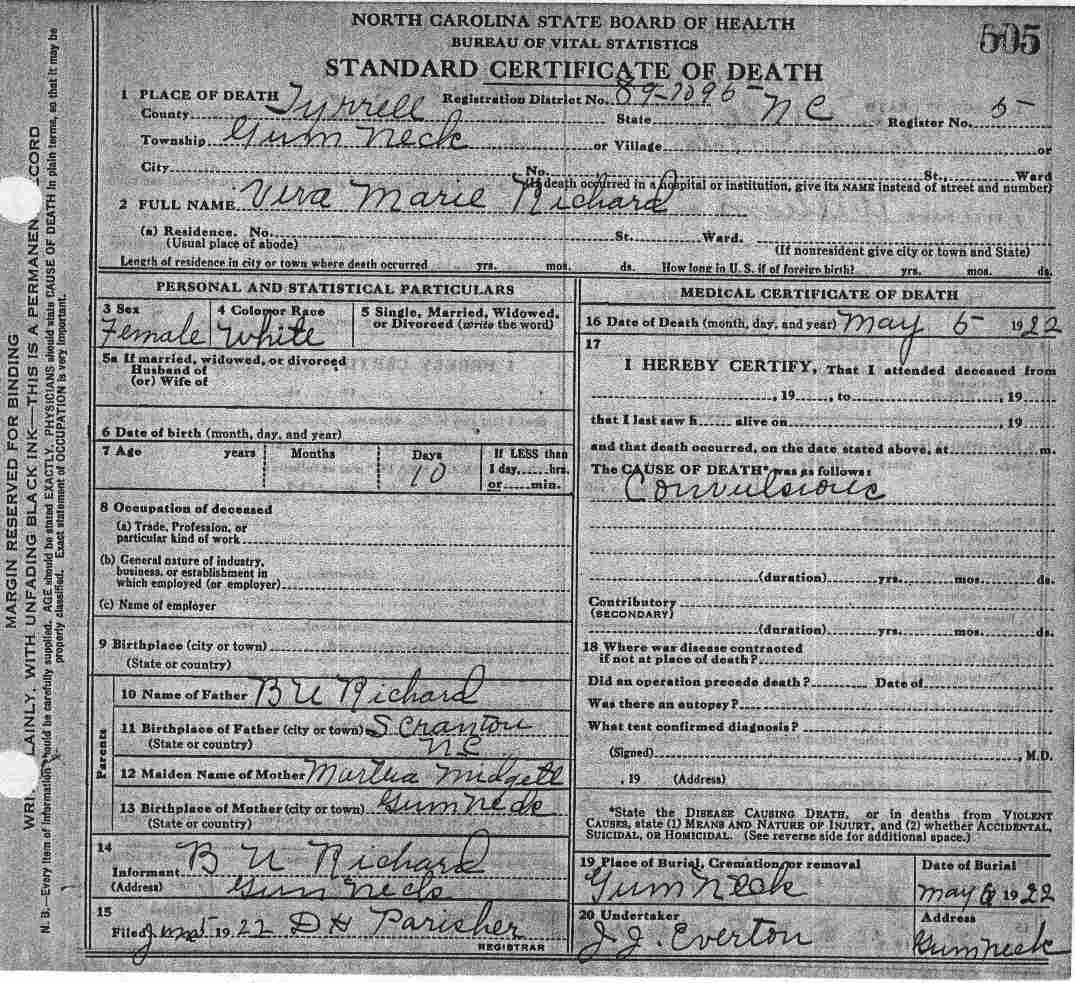 NORTH CAROLINA STATE BOARD OF HEALTH
BUREAU OF VITAL STATISTICS
505
STANDARD CERTIFICATE OF DEATH
1 PLACE OF DEATH
County Tyrrell Registration District No. 89-7396 State NC Register No. 5
Township Gum Neck or Village or
City No. St., Ward
(If death occurred in a hospital or institution, give its NAME instead of street and number)
2 FULL NAME Viva Marie Richard
(a) Residence. No. St. Ward.
(Usual place of abode) (If nonresident give city or town and State)
Length of residence in city or town where death occurred yrs. mos. ds. How long in U. S. if of foreign birth? yrs. mos. ds.
PERSONAL AND STATISTICAL PARTICULARS
3 Sex 4 Color or Race 5 Single, Married, Widowed,
or Divorced (write the word)
Female White
5a If married, widowed, or divorced
Husband of
(or) Wife of
6 Date of birth (month, day, and year)
7 Age years Months Days If LESS than
1 day, hrs.
10 or min.
8 Occupation of deceased
(a) Trade, Profession, or
particular kind of work
(b) General nature of industry,
business, or establishment in
which employed (or employer)
(c) Name of employer
9 Birthplace (city or town)
(State or country)
Parents
10 Name of Father B U Richard
11 Birthplace of Father (city or town) Scranton
(State or country) NC
12 Maiden Name of Mother Martha Midgett
13 Birthplace of Mother (city or town) Gum Neck
(State or country)
14
Informant B U Richard
(Address) Gum Neck
15
Filed 5 1922 D H Parisher
REGISTRAR
MEDICAL CERTIFICATE OF DEATH
16 Date of Death (month, day, and year) May 5 1922
17
I HEREBY CERTIFY, That I attended deceased from
, 19 , to , 19
that I last saw h alive on , 19
and that death occurred, on the date stated above, at m.
The CAUSE OF DEATH* was as follows:
Convulsions
(duration) yrs. mos. ds.
Contributory
(SECONDARY)
(duration) yrs. mos. ds.
18 Where was disease contracted
if not at place of death?
Did an operation precede death? Date of
Was there an autopsy?
What test confirmed diagnosis?
(Signed) , M.D.
, 19 (Address)
*State the DISEASE CAUSING DEATH, or in deaths from VIOLENT
CAUSES, state (1) MEANS AND NATURE OF INJURY, and (2) whether ACCIDENTAL,
SUICIDAL, OR HOMICIDAL. (See reverse side for additional space.)
19 Place of Burial, Cremation, or removal Date of Burial
Gum Neck May 6 1922
20 Undertaker Address
J. J. Everton Gum Neck
MARGIN RESERVED FOR BINDING
LAINLY, WITH UNFADING BLACK INK—THIS IS A PERMANEN CORD
N. B.—Every item of information should be carefully supplied. AGE should be stated EXACTLY. PHYSICIANS should state CAUSE OF DEATH in plain terms, so that it may be
properly classified. Exact statement of OCCUPATION is very important.